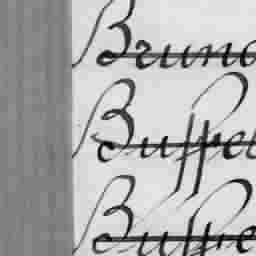 Bruno
Buffet
Buffe